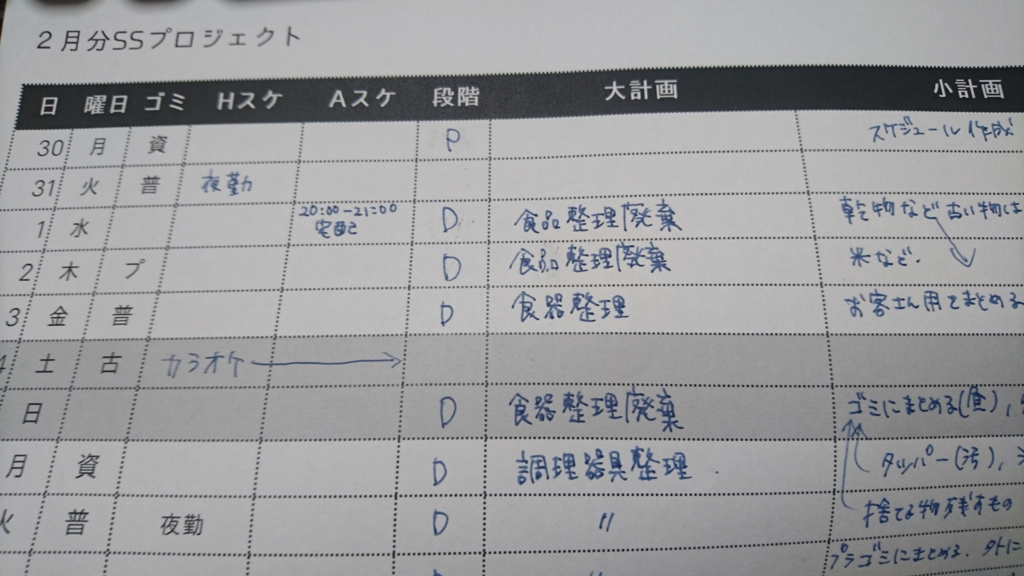 2月分SSプロジェクト
日 曜日 ゴミ Hスケ Aスケ 段階 大計画 小計画
30 月 資 P スケジュール作成
31 火 普 夜勤
1 水 20:00-21:00 宅配 D 食品整理/廃棄 乾物など古い物は
2 木 プ D 食品整理/廃棄 米など.
3 金 普 D 食器整理 お客さん用とまとめる
4 土 古 カラオケ
日 D 食器整理/廃棄 ゴミにまとめる(食),
月 資 D 調理器具整理. タッパー(汚),
火 普 夜勤 D 〃 捨てる物残すもの
プラゴミにまとめる.